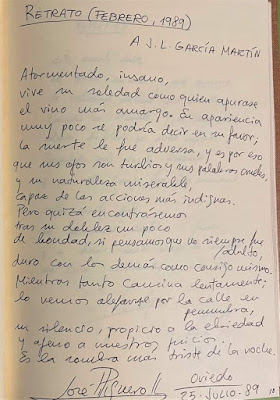 RETRATO (FEBRERO, 1989)
A J.L. GARCÍA MARTÍN
Atormentado, insano,
vive su soledad como quien apurase
el vino más amargo. En apariencia
muy poco se podría decir en su favor,
la suerte le fue adversa, y es por eso
que sus ojos son turbios y sus palabras crueles,
y su naturaleza miserable,
capaz de las acciones más indignas.
Pero quizá encontrásemos
tras su doblez un poco
de bondad, si pensamos que no siempre fue
duro con los demás como consigo mismo.
Mientras tanto camina lentamente;
lo vemos alejarse por la calle en
penumbra,
en silencio, propicio a la ebriedad
y ajeno a nuestros juicios.
Es la sombra más triste de la noche.
Oviedo
25-JULIO-89
10